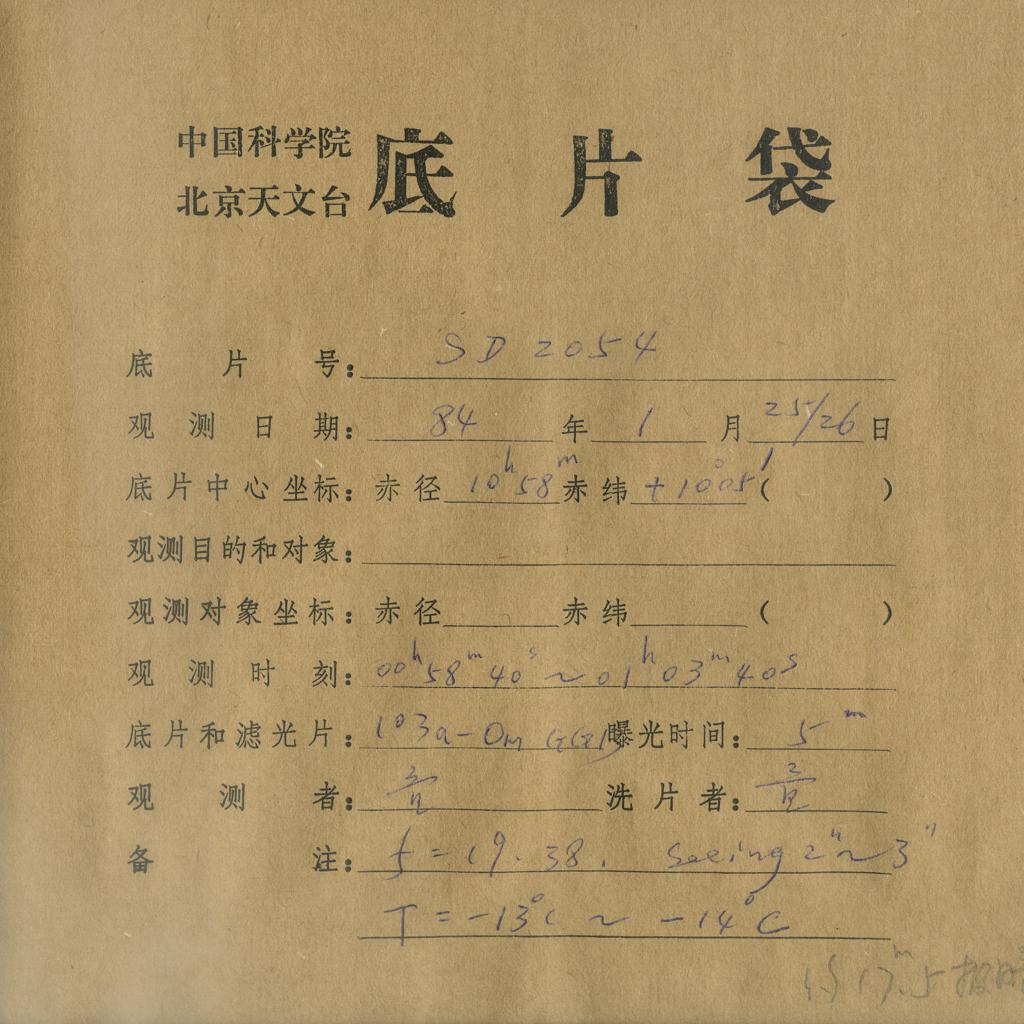 中国科学院
北京天文台
底片袋
底片号: SD 2054
观测日期: 84 年 1 月 25/26 日
底片中心坐标: 赤径 10h58m 赤纬 +10°05′ ( )
观测目的和对象:
观测对象坐标: 赤径 赤纬 ( )
观测时刻: 00h58m40s ~ 01h03m40s
底片和滤光片: 103a-0m 曝光时间: 5m
观测者: 洗片者:
备注: f = 19.38. Seeing 2″~3″
T = -13°C ~ -14°C
17m.5